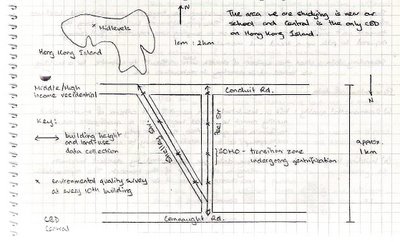 The area we are studying is near our
school and Central is the only CBD
on Hong Kong Island.
N
x Midlevels
1cm : 2km
Hong Kong Island
Middle/High
income residential
Conduit Rd.
N
Key:
building height
and landuse
data collection
x environmental quality survey
at every 10th building
Shelley St.
Peel St
SOHO - transition zone
undergoing gentrification
approx
1km
CBD
Central
Connaught Rd.